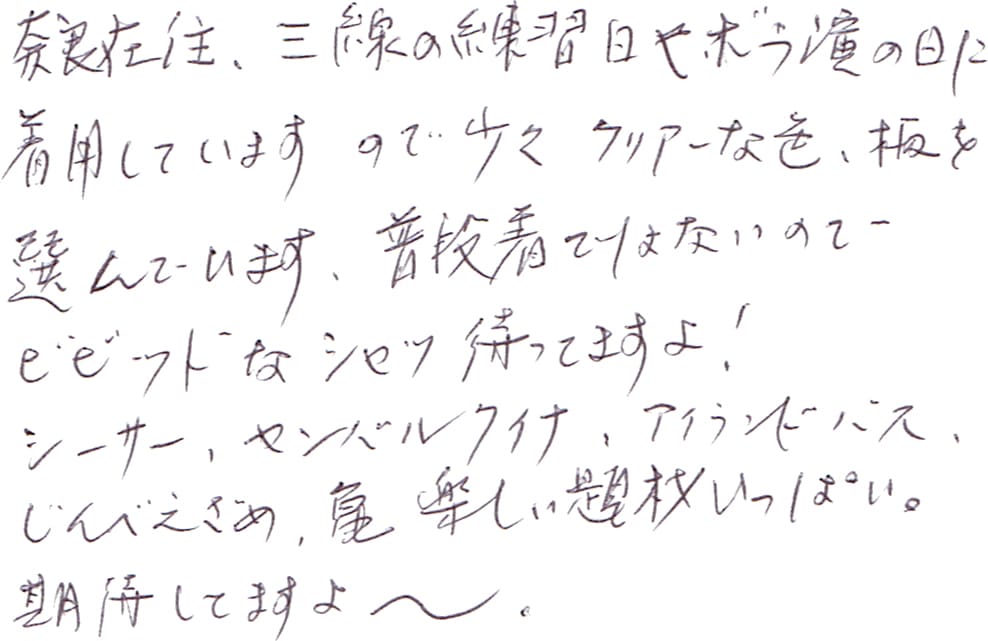 奈良在住、三線の練習日やボラ演の日に
着用していますので少々クリアーな色、柄を
選んでいます、普段着ではないので
ビビッドなシャツ待ってますよ!
シーサー、ヤンバルクイナ、アイランドバス、
じんべえざめ、亀 楽しい題材いっぱい。
期待してますよ〜。